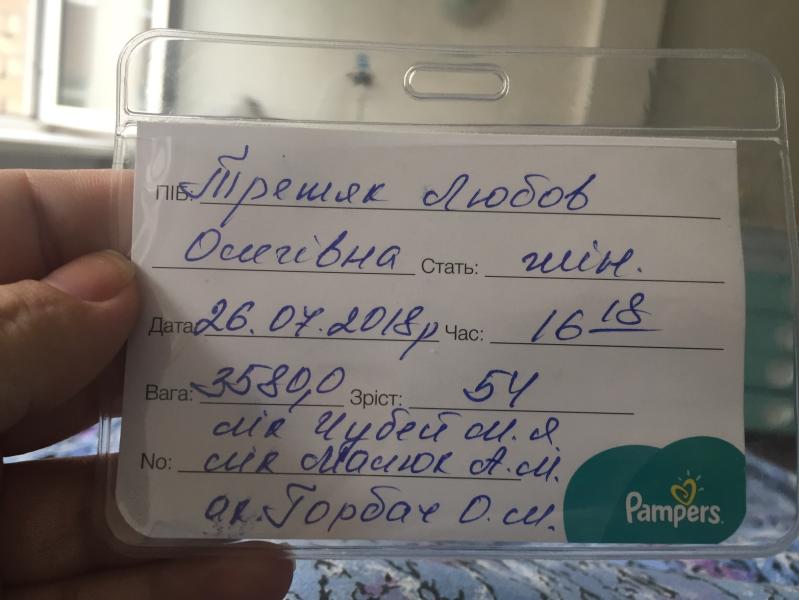 ПІБ: Трешяк Любов
Олегівна Стать: жін.
Дата 26.07.2018р Час: 16 18
Вага: 3580,0 Зріст: 54
лік Чубей М.Я
No: лік Малюк А.М.
ак. Горбач О.М.
Pampers